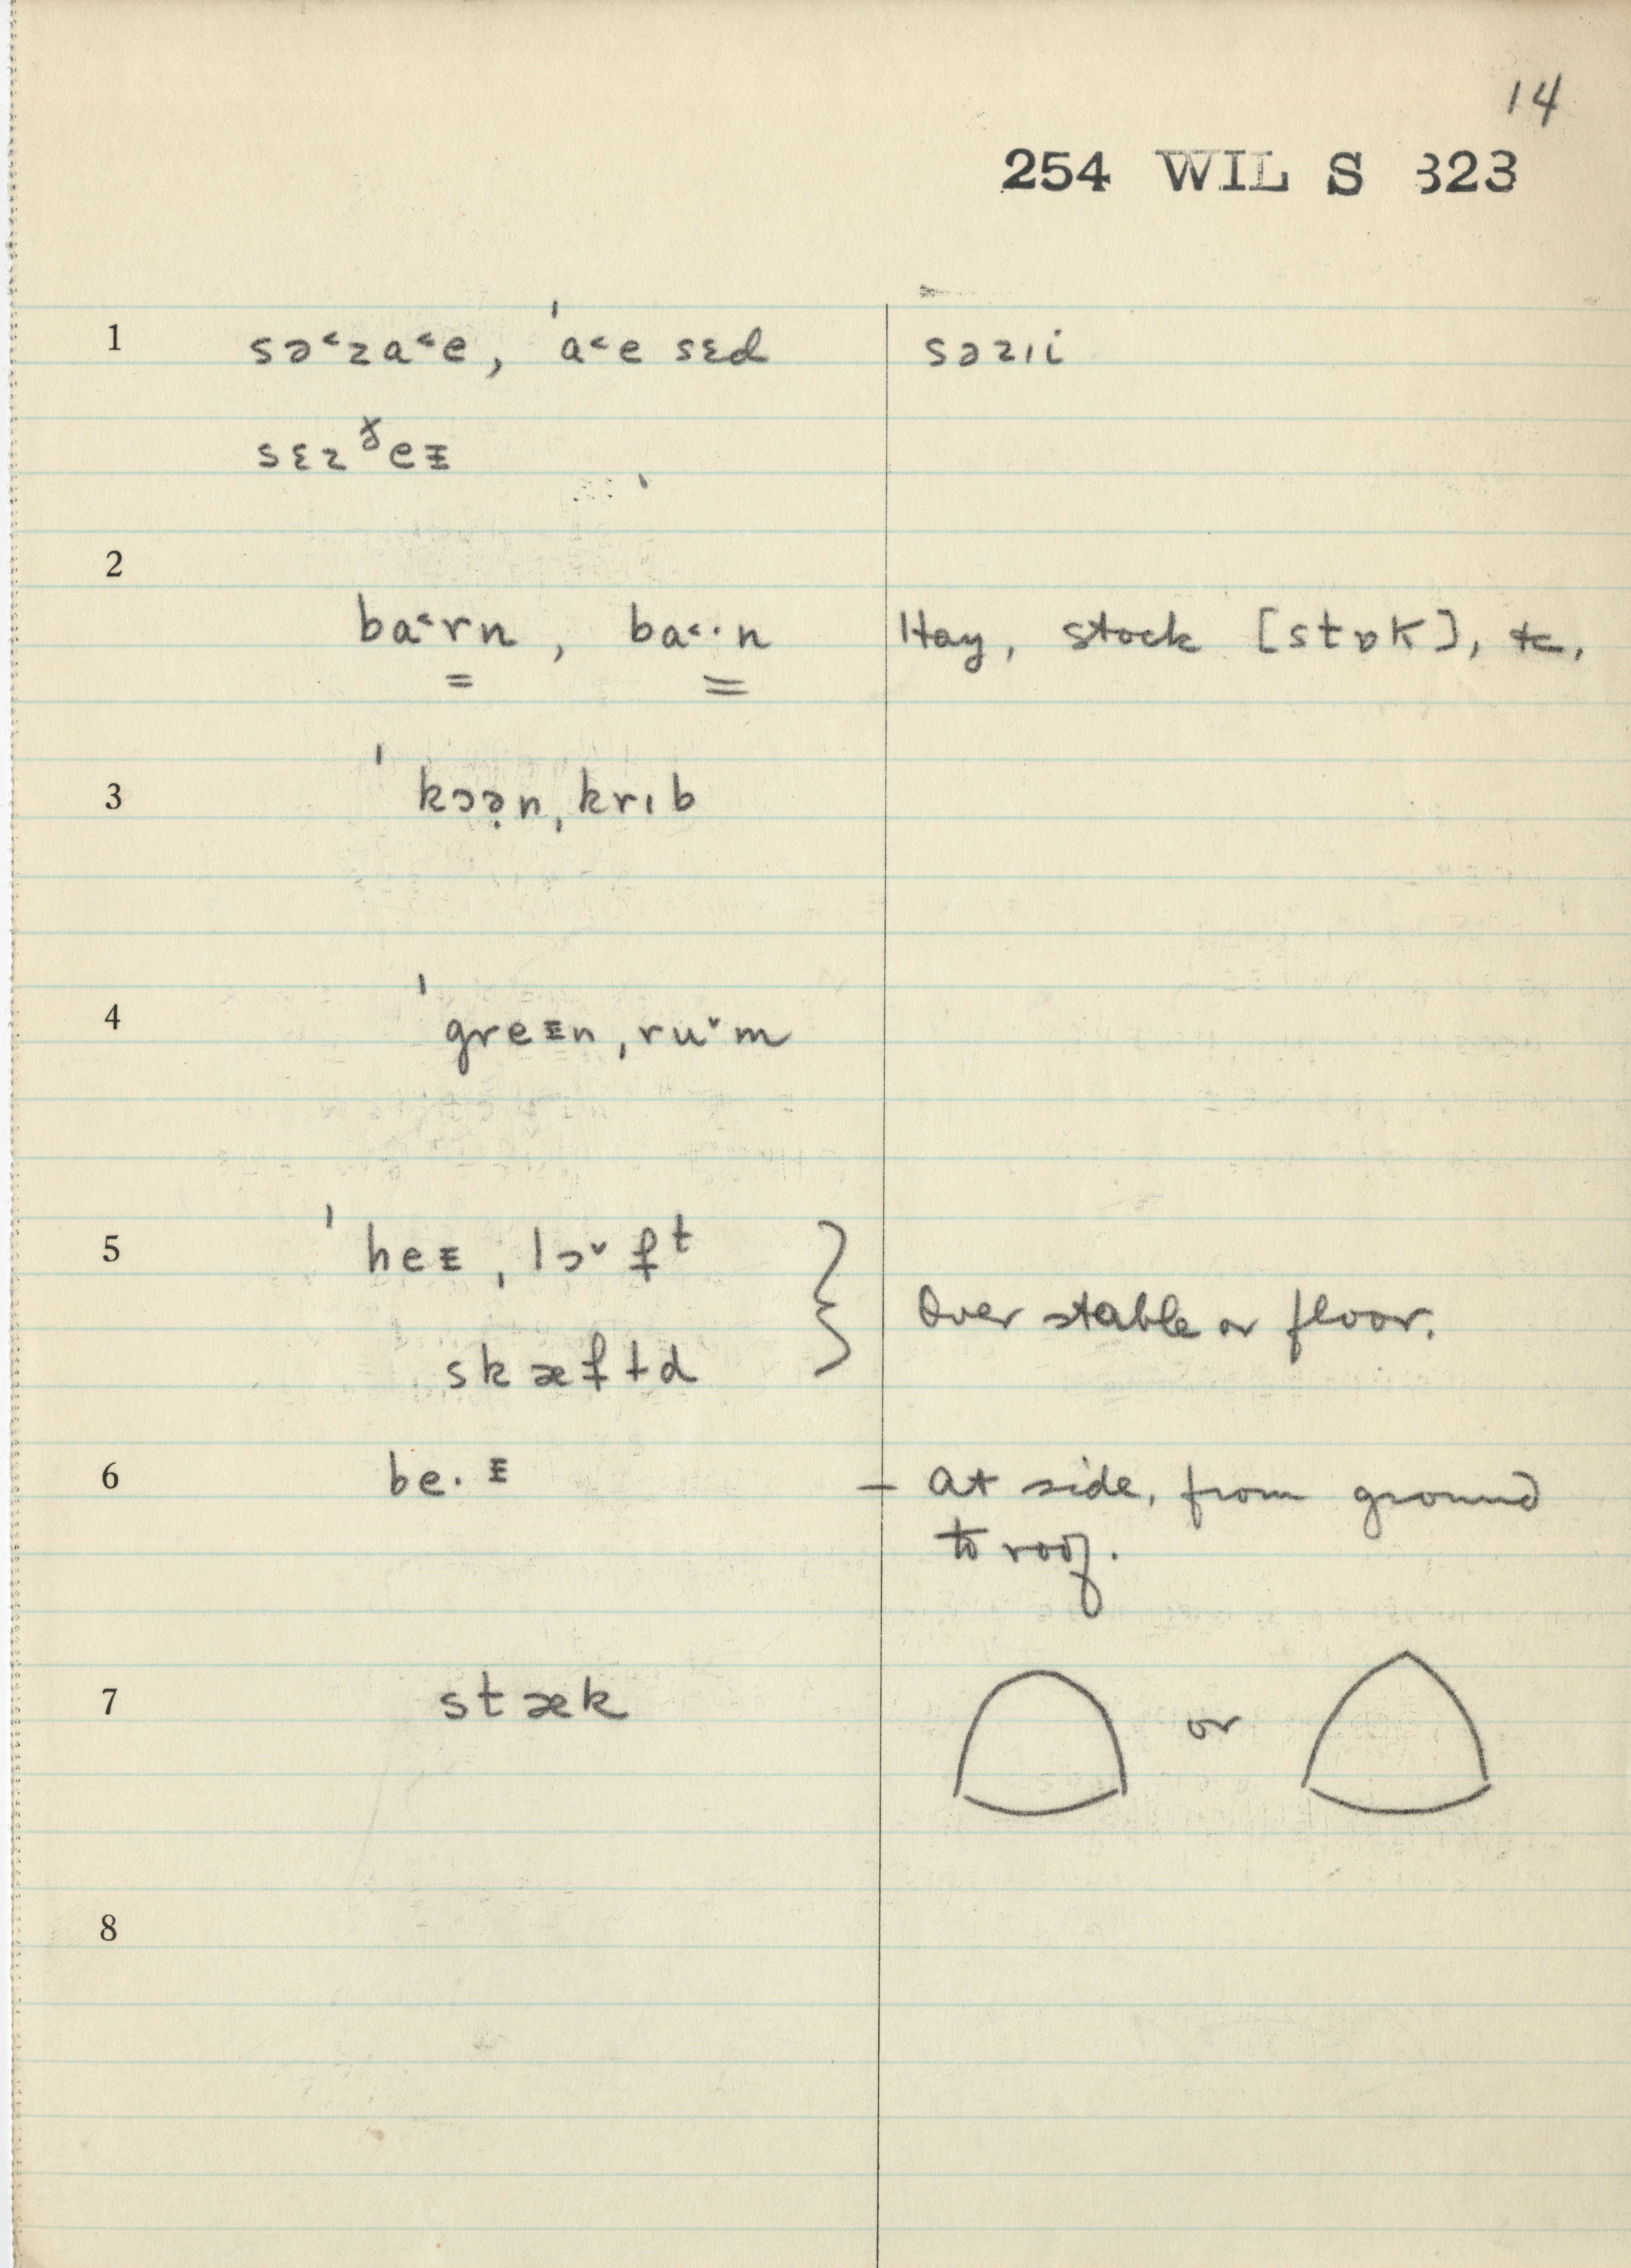 14
254 WIL S 323
1 sə˂ƨa˂e, ˈa˂e sɛd səƨɩi
sɛƨ ɤ̯eᵻ
2
ba˂rn, ba˂·n Hay, stock [stɒk], etc.
3 ˈkɔə̣nˌkrɩb
4 ˈgreᵻnˌruˇm
5 ˈheᵻˌlɔˇfᵗ
Over stable or floor.
skæftd
6 be·ᵻ – at side, from ground
to roof.
7 stæk or
8